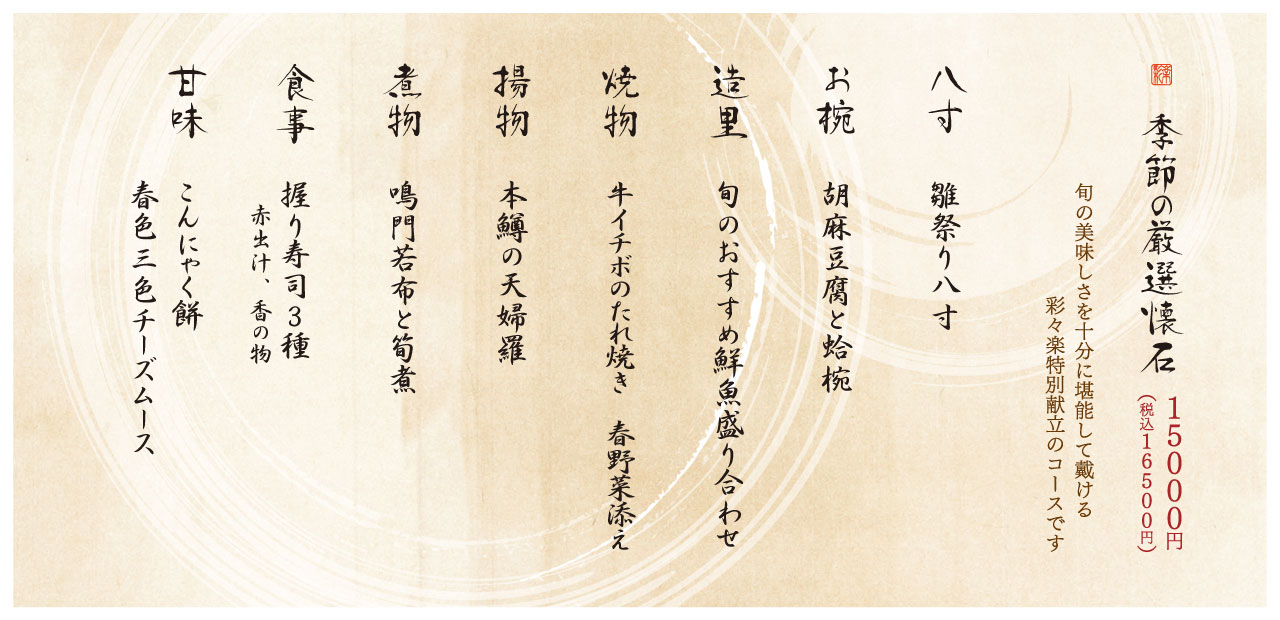 季節の厳選懐石
15000円
（税込16500円）
旬の美味しさを十分に堪能して戴ける
彩々楽特別献立のコースです
八寸　雛祭り八寸
お椀　胡麻豆腐と蛤椀
造里　旬のおすすめ鮮魚盛り合わせ
焼物　牛イチボのたれ焼き　春野菜添え
揚物　本鱒の天婦羅
煮物　鳴門若布と筍煮
食事　握り寿司３種
赤出汁、香の物
甘味　こんにゃく餅
春色三色チーズムース